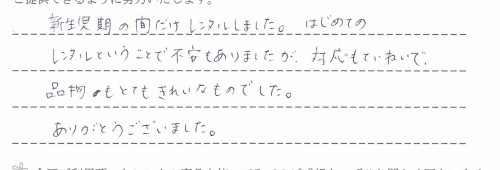 ご提供できるように努力いたします。
新生児期の間だけレンタルしました。 はじめての
レンタルということで不安もありましたが、対応もていねいで、
品物もとてもきれいなものでした。
ありがとうございました。